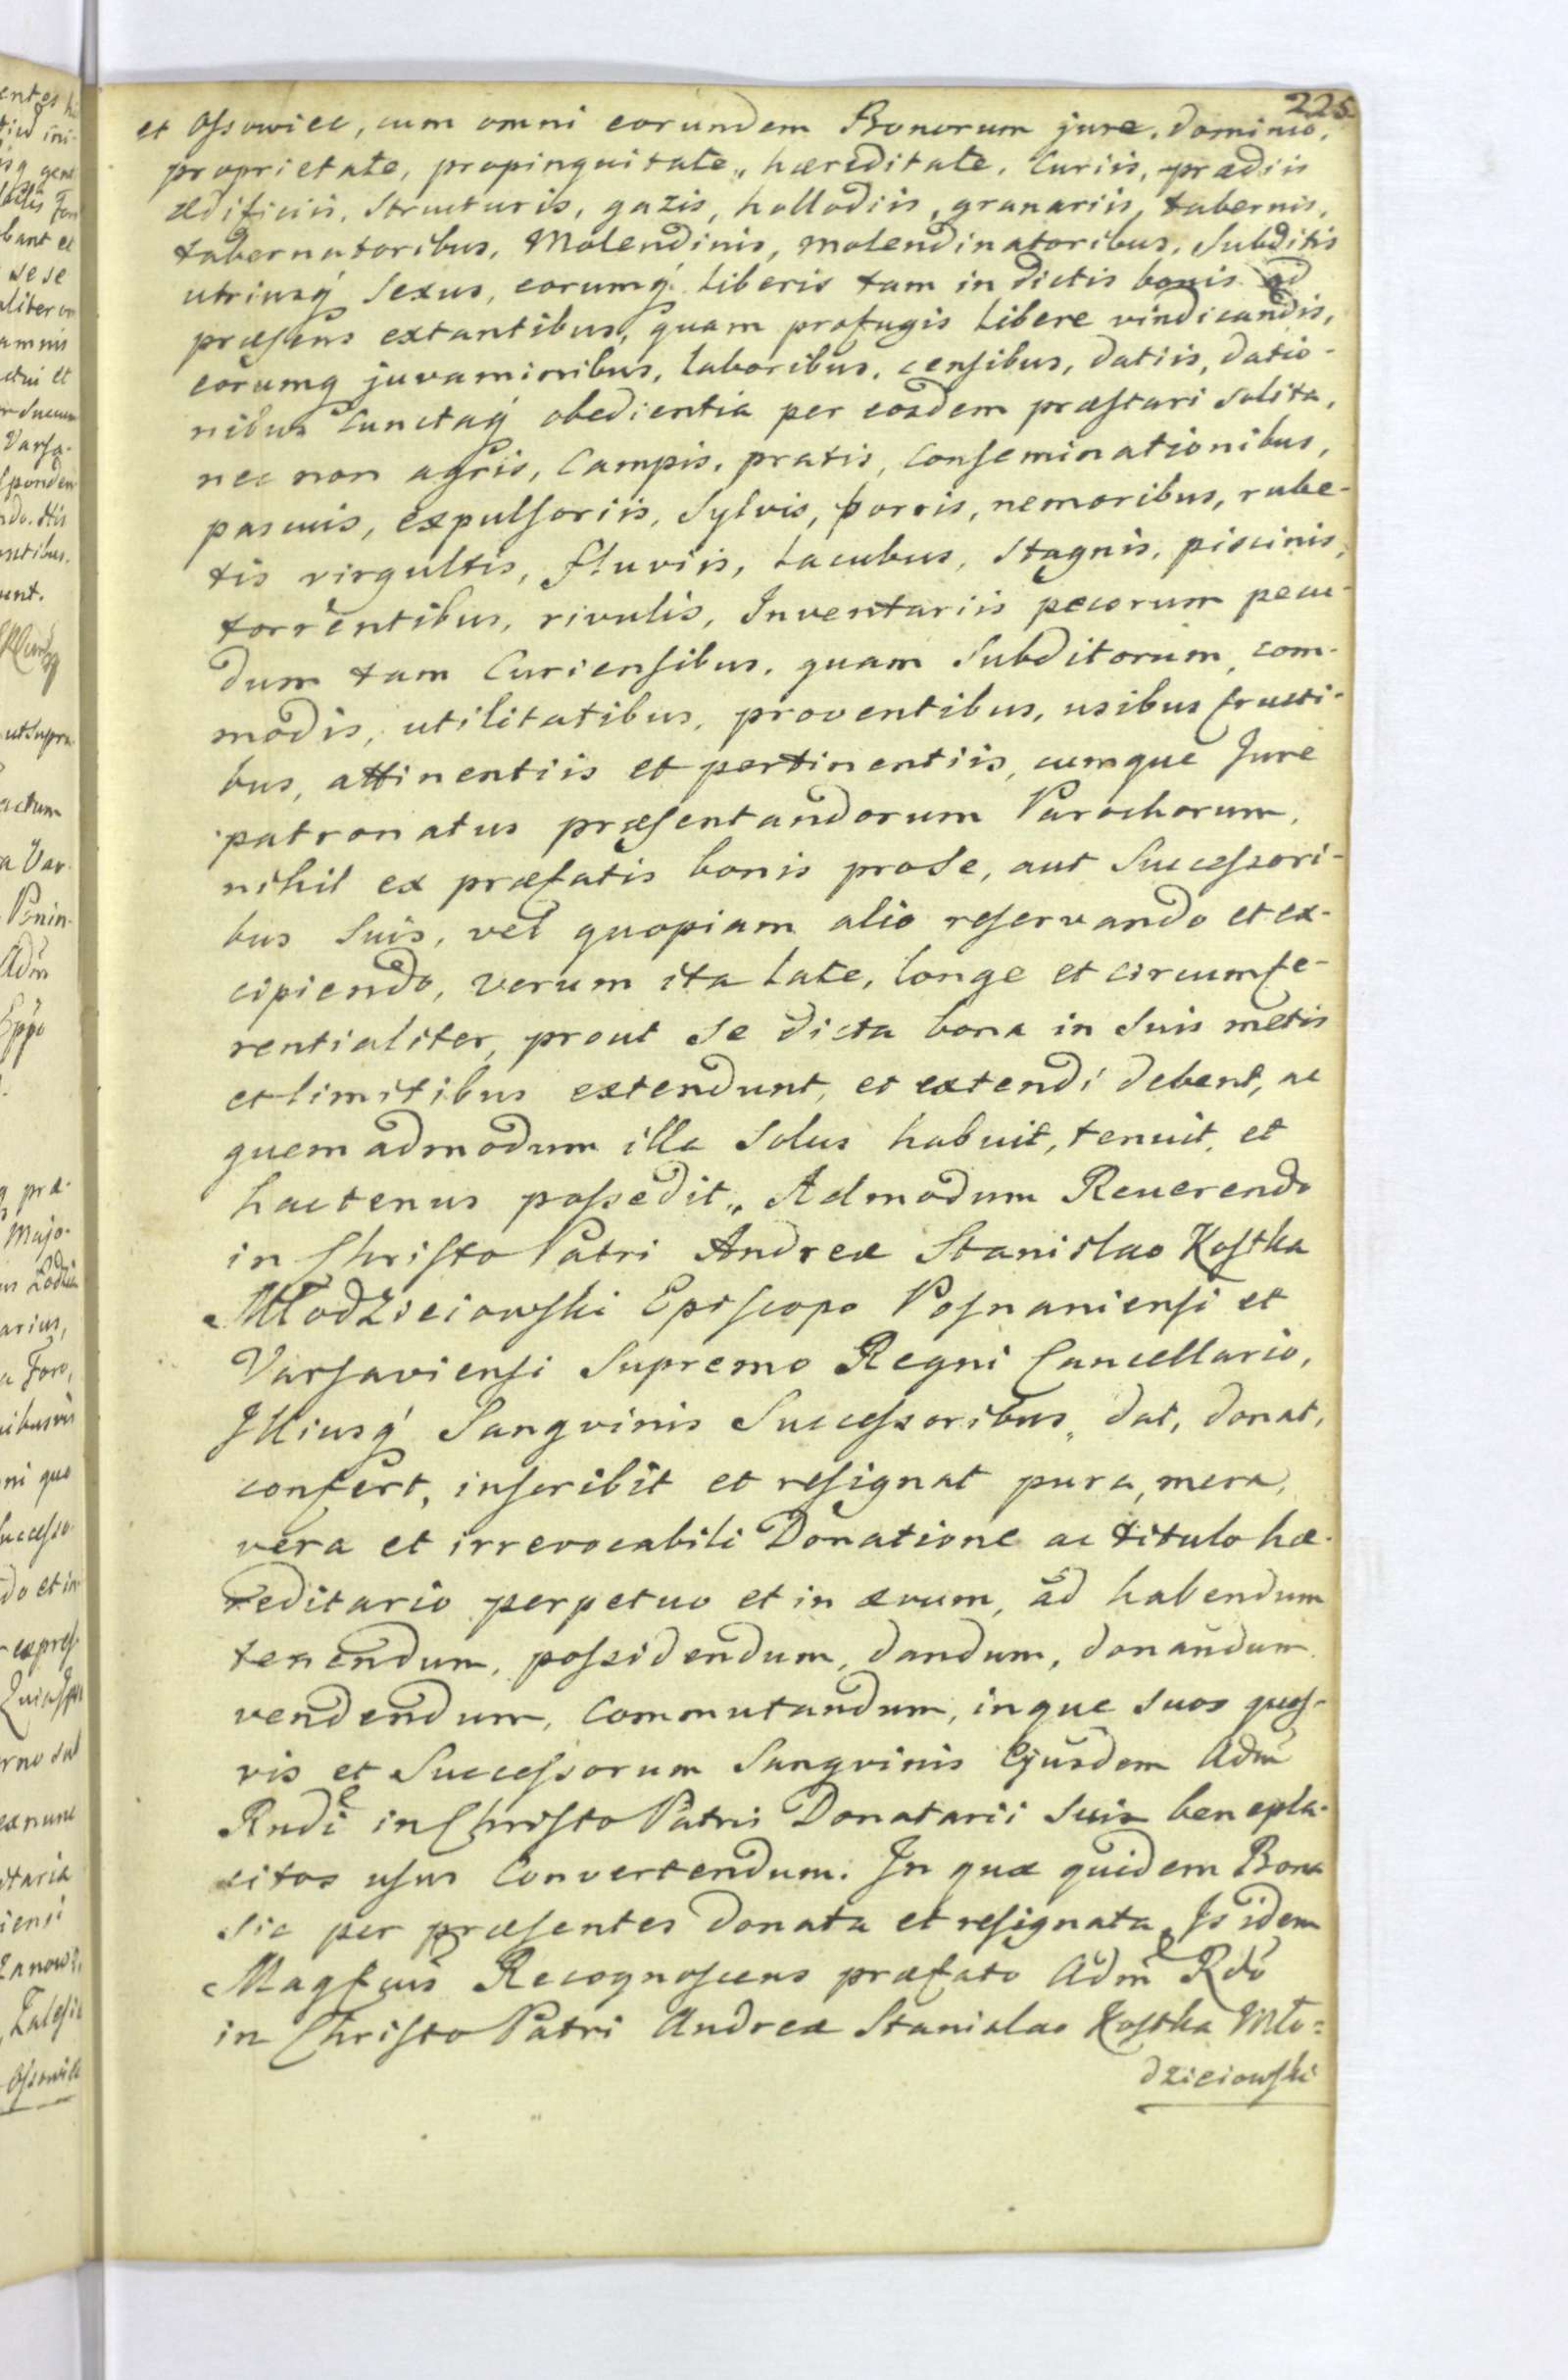 225
et Ossowiec, cum omni eorundem Bonorum jure, dominio,
proprietate, propinquitate, hæreditate, Curiis, prædiis
ædificiis, Structuris, gazis, hollodiis, granariis, tabernis,
tabernatoribus, Molendinis, molendinatoribus, Subditis
utriusq́ Sexus, eorumq́ Liberis tam in dictis bonis ad
præsens extantibus, quam profugis Libere vindicandis,
eorumq juvaminibus, Laboribus, censibus, datiis, datio-
nibus Cunctaq́ obedientia per eosdem præstari Solita,
nec non agris, Campis, pratis, Conseminationibus,
pascuis, expulsoriis, Sylvis, borris, nemoribus, rube-
tis virgultis, fluviis, Lacubus, Stagnis, piscinis,
torrentibus, rivulis, Inventariis pecorum pecu-
dum tam Curiensibus, quam Subditorum, com-
modis, utilitatibus, proventibus, usibus fructi-
bus, attinentiis et pertinentiis, cumque Jure
patronatus præsentandorum Parochorum,
nihil ex præfatis bonis prose, aut Successori-
bus Suis, vel quopiam alio reservando et ex-
cipiendo, verum ita Late, Longe et circumfe-
rentialiter, prout Se dicta bona in Suis metis
et limitibus extendunt, et extendi debent, ac
quemadmodum illa Solus habuit, tenuit, et
hactenus possedit„ Admodum Reuerendo
in Christo Patri Andreæ Stanislao Kostka
Młodzieiowski Episcopo Posnaniensi et
Varsaviensi Supremo Regni Cancellario,
Illiusq́ Sangvinis Successoribus, dat, donat,
confert, inscribit et resignat pura, mera,
vera et irrevocabili Donatione ac titulo hæ-
reditario perpetuo et in ævum, ad habendum
tenendum, possidendum, dandum, donandum
vendendum, Commutandum, inque Suos quos-
vis et Successorum Sangvinis Ejusdem Adm̃
Rndi in Christo Patris Donatarii Suis benepla-
citos usus Convertendum. In quæ quidem Bona
Sic per præsentes donata et resignata, Is idem
Magfcus Recognoscens præfato Adm̃ Rdo
in Christo Patri Andreæ Stanislao Kostka Mło=
dzieiowski